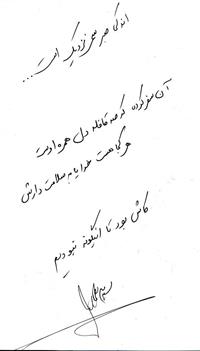 اندکی صبر سحر نزدیک است...
آن سفر کرده که صد قافله دل همره اوست
هر کجا هست خدایا به سلامت دارش
کاش بود تا اینگونه نبودیم